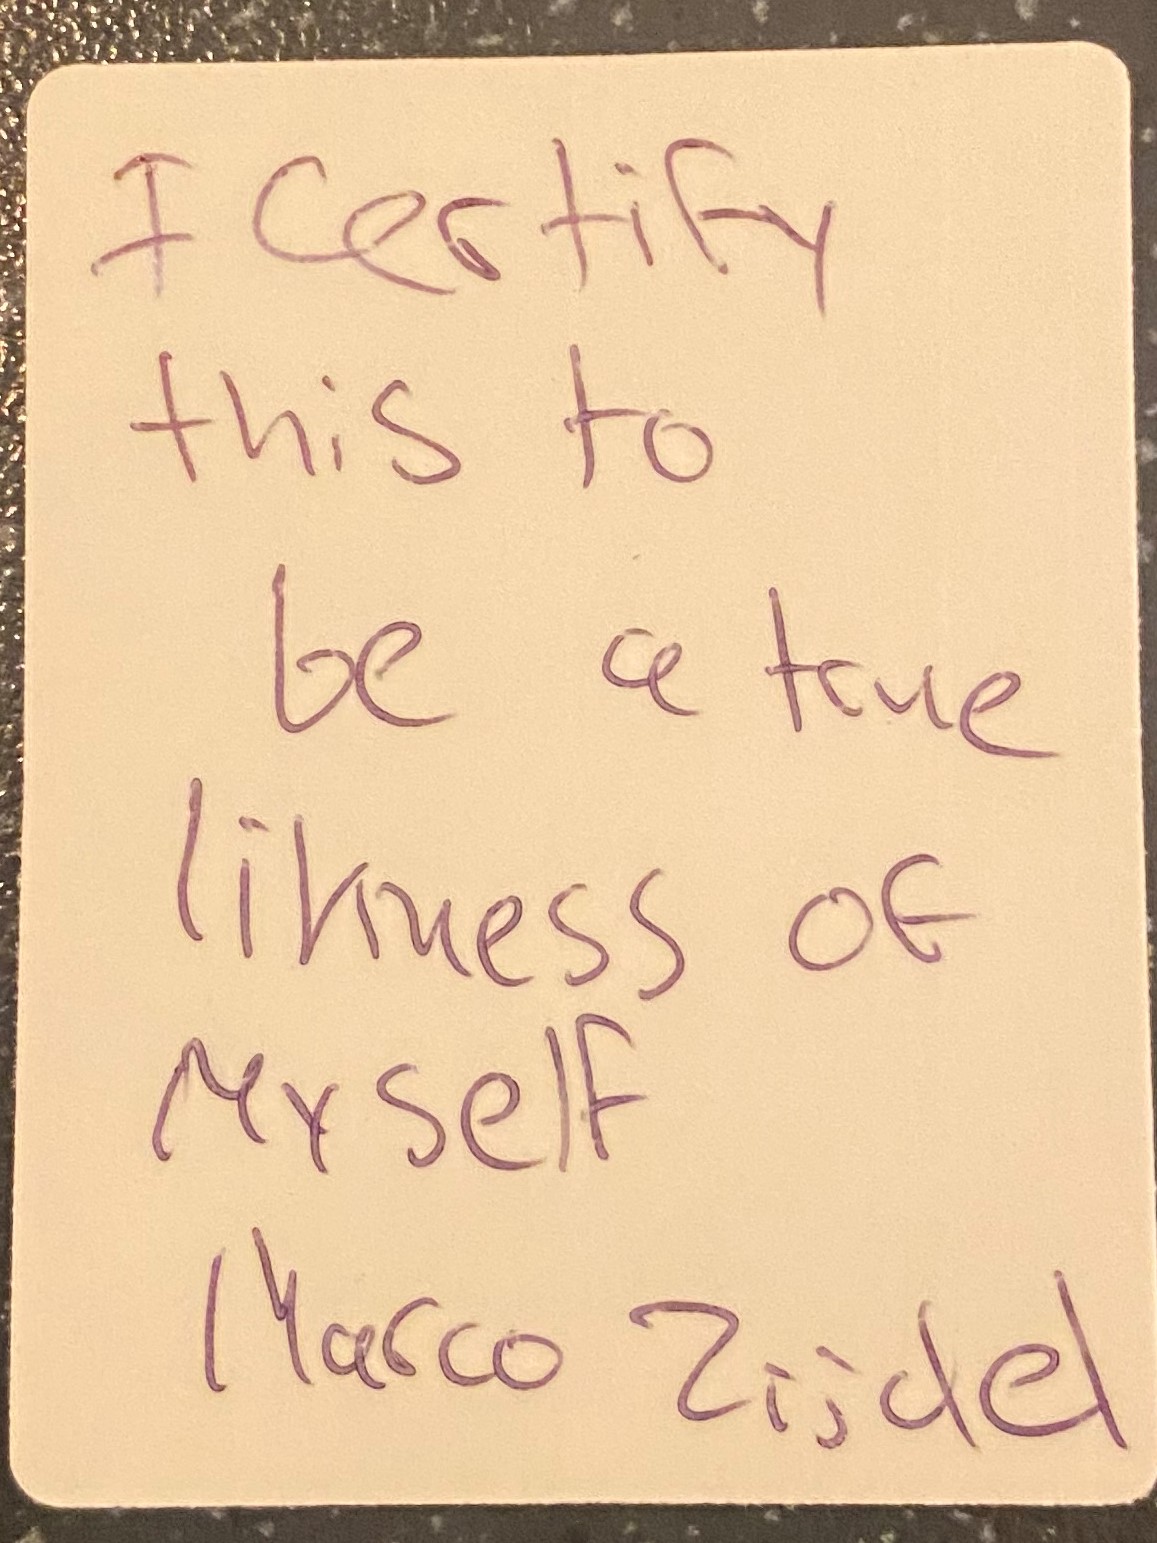 I Certify
this to
be a true
likness of
Myself
Marco Zijdel